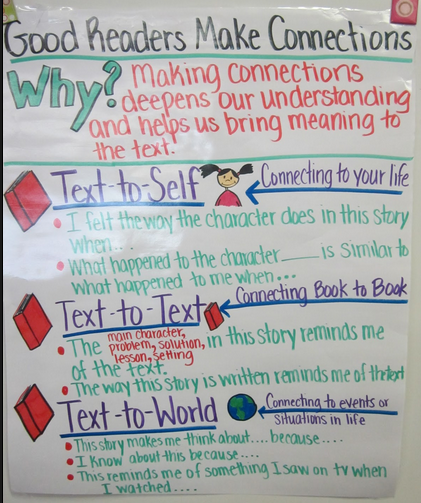 Good Readers Make Connections
Why? Making connections
deepens our understanding
and helps us bring meaning to
the text.
Text-to-Self
Connecting to your life
• I felt the way the character does in this story
when....
• What happened to the character ____ is similar to
what happened to me when...
Text-to-Text
Connecting Book to Book
• The main character, problem, solution, lesson, setting in this story reminds me
of the text.
• The way this story is written reminds me of the text
Text-to-World
Connecting to events or
situations in life
• This story makes me think about.... because....
• I know about this because....
• This reminds me of something I saw on tv when
I watched....